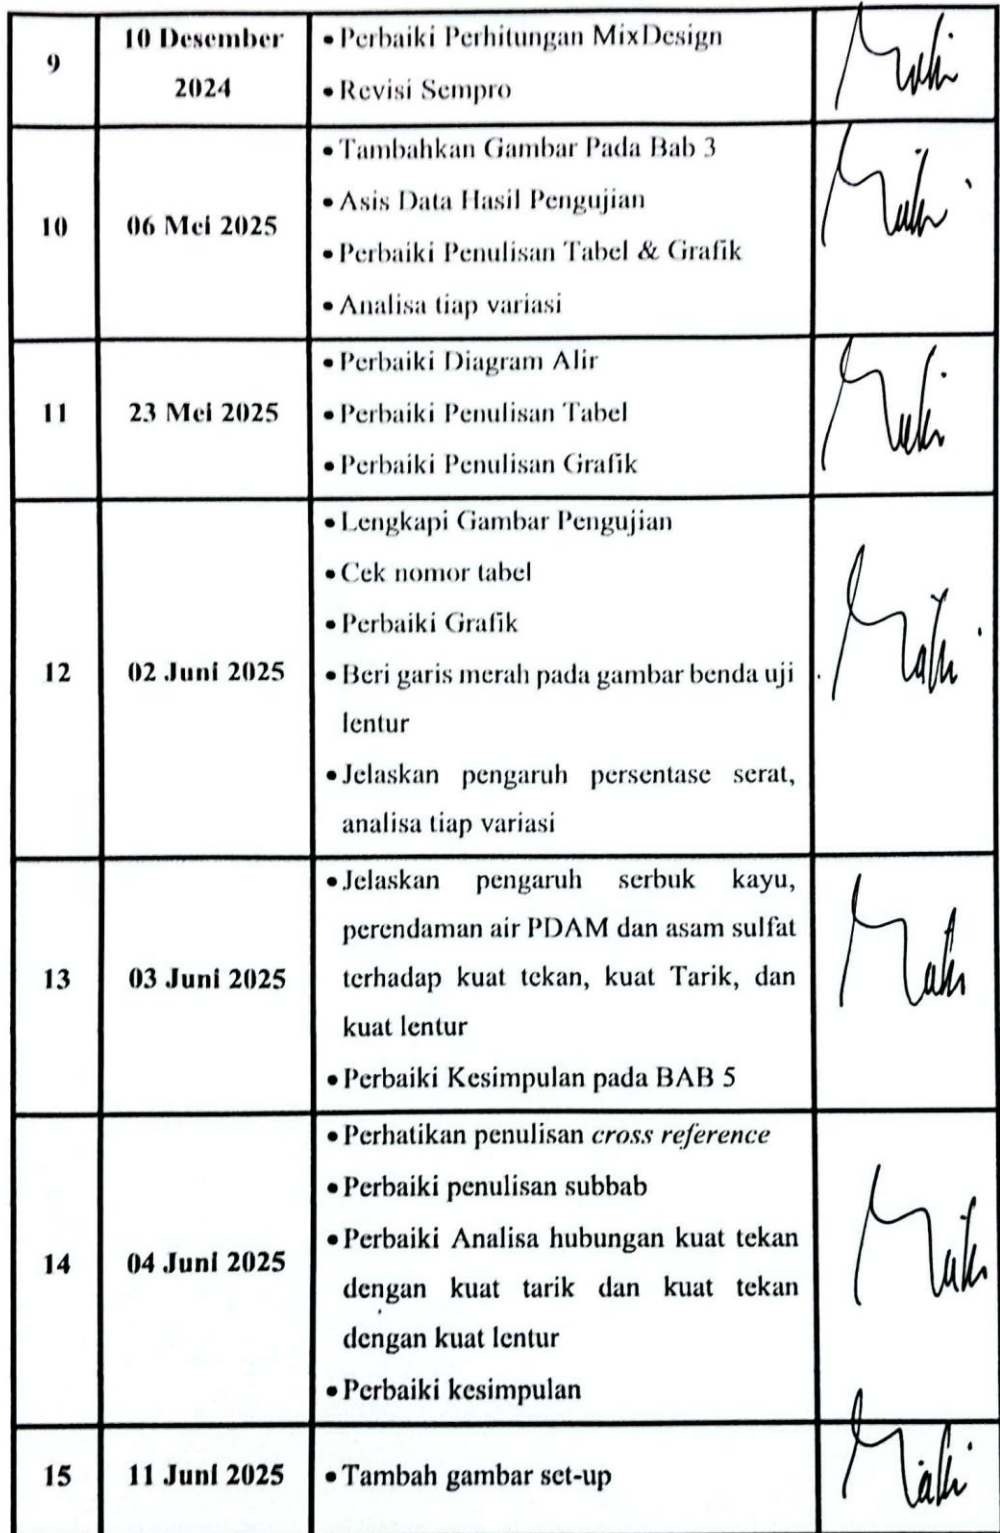 9
10 Desember
2024
• Perbaiki Perhitungan MixDesign
• Revisi Sempro
10
06 Mei 2025
• Tambahkan Gambar Pada Bab 3
• Asis Data Hasil Pengujian
• Perbaiki Penulisan Tabel & Grafik
• Analisa tiap variasi
11
23 Mei 2025
• Perbaiki Diagram Alir
• Perbaiki Penulisan Tabel
• Perbaiki Penulisan Grafik
12
02 Juni 2025
• Lengkapi Gambar Pengujian
• Cek nomor tabel
• Perbaiki Grafik
• Beri garis merah pada gambar benda uji
lentur
• Jelaskan pengaruh persentase serat,
analisa tiap variasi
13
03 Juni 2025
• Jelaskan pengaruh serbuk kayu,
perendaman air PDAM dan asam sulfat
terhadap kuat tekan, kuat Tarik, dan
kuat lentur
• Perbaiki Kesimpulan pada BAB 5
14
04 Juni 2025
• Perhatikan penulisan cross reference
• Perbaiki penulisan subbab
• Perbaiki Analisa hubungan kuat tekan
dengan kuat tarik dan kuat tekan
dengan kuat lentur
• Perbaiki kesimpulan
15
11 Juni 2025
• Tambah gambar set-up